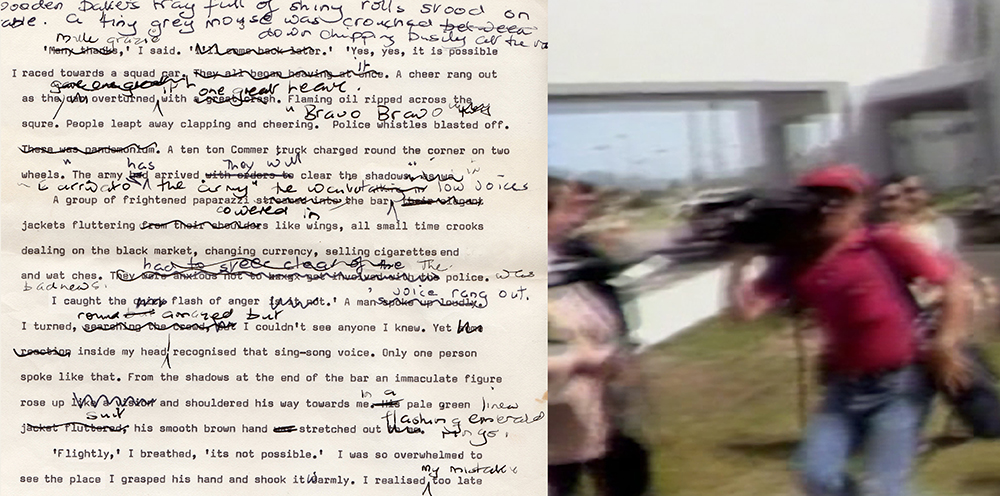 wooden Bakers tray full of shiny rolls stood on
a tiny grey mouse was crouched between
down chipping busily at the
mille grazie
'Many thanks,' I said. 'Will come back later.' 'Yes, yes, it is possible
I raced towards a squad car. They all began heaving at once. A cheer rang out
it
gave one great one great heave.
as the overturned with a great crash. Flaming oil ripped across the
"Bravo Bravo"
squre. People leapt away clapping and cheering. Police whistles blasted off.
There was pandemonium. A ten ton Commer truck charged round the corner on two
has They will
wheels. The army had arrived with orders to clear the shadows
the army" he low voices
A group of frightened paparazzi streamed into the bar, their elegant
cowered in
jackets fluttering from their shoulders like wings, all small time crooks
dealing on the black market, changing currency, selling cigarettes end
had to steer clear of the The
and wat ches. They were anxious not to get involved with the police. was
bad news.
voice rang out.
I caught the flash of anger not.' A man spoke up loudly
round amazed but
I turned, searching the crowd, but I couldn't see anyone I knew. Yet
reaction inside my head recognised that sing-song voice. Only one person
spoke like that. From the shadows at the end of the bar an immaculate figure
in a
rose up like a vision and shouldered his way towards me. His pale green linen
suit flashing emerald
jacket fluttered, his smooth brown hand was stretched out
rings.
'Flightly,' I breathed, 'its not possible.' I was so overwhelmed to
my mistake
see the place I grasped his hand and shook it warmly. I realised too late